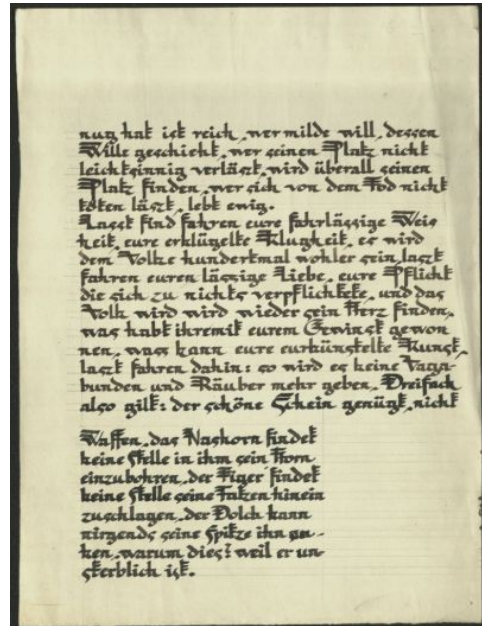 nug hat ist reich, wer milde will, dessen
Wille geschieht, wer seinen Platz nicht
leichtsinnig verläszt, wird überall seinen
Platz finden, wer sich von dem Tod nicht
töten läszt, lebt ewig.
Lasst find fahren eure fahrlässige Weis
heit, eure erklügelte Klugheit, es wird
dem Volke hundertmal wohler sein, laszt
fahren euren lässige Liebe, eure Pflicht
die sich zu nichts verpflichtete, und das
Volk wird wird wieder sein Herz finden,
was habt ihr mit eurem Gewinst gewon
nen, was kann eure eurkünstelte Kunst,
laszt fahren dahin: so wird es keine Vaga-
bunden und Räuber mehr geben. Dreifach
also gilt: der schöne Schein genügt nicht
Waffen, das Nashorn findet
keine Stelle in ihm sein Horn
einzubohren, der Tiger findet
keine Stelle seine Tatzen hinein
zuschlagen, der Dolch kann
nirgends seine Spitze ihn
ken, warum dies? weil er un-
sterblich ist.